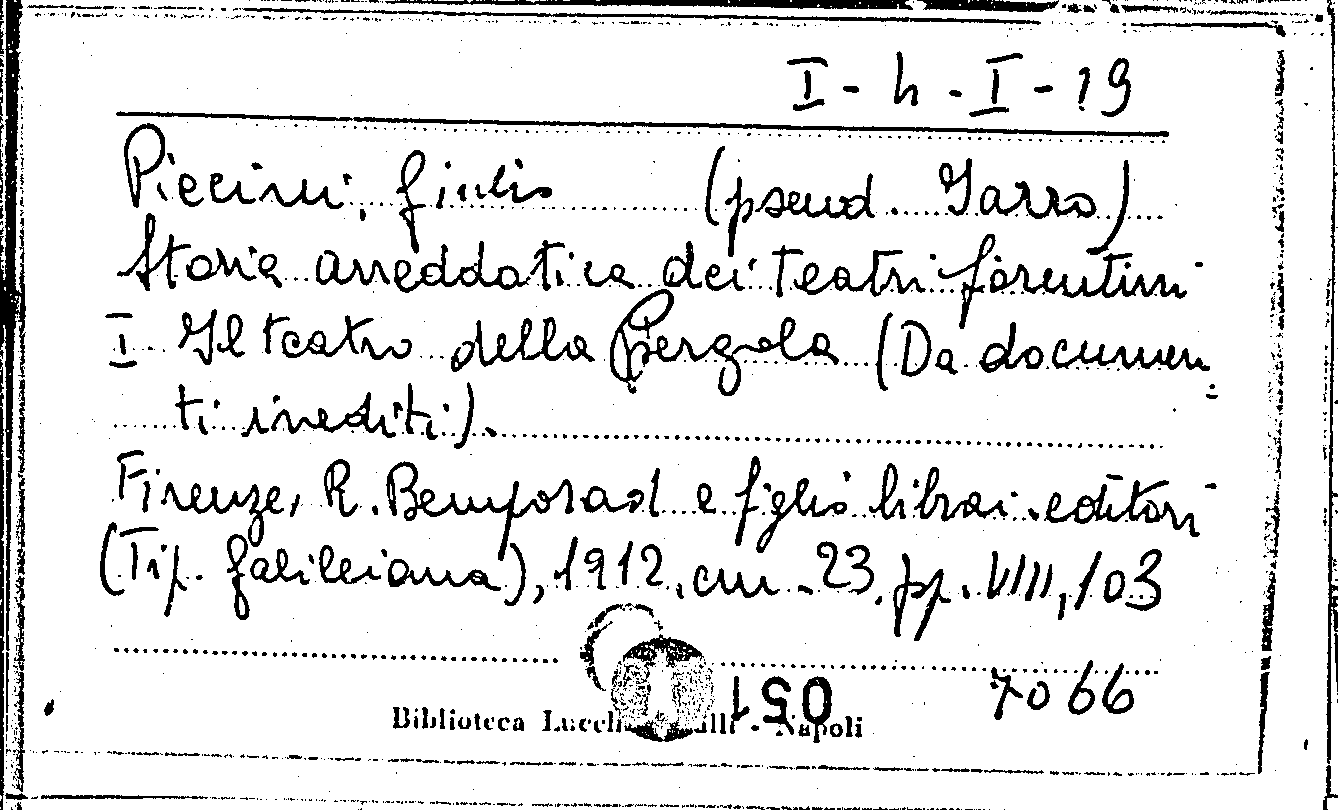 I - h - I - 19
Piccini, Giulio (pseud. Jarro)
Storia aneddotica dei teatri fiorentini
I Il teatro della Pergola (Da documen=
ti inediti).
Firenze, R. Bemporad e figlio librai-editori
(Tip. Galileiana), 1912, cm. 23, pp. VIII, 103
7066
051
Biblioteca - Napoli